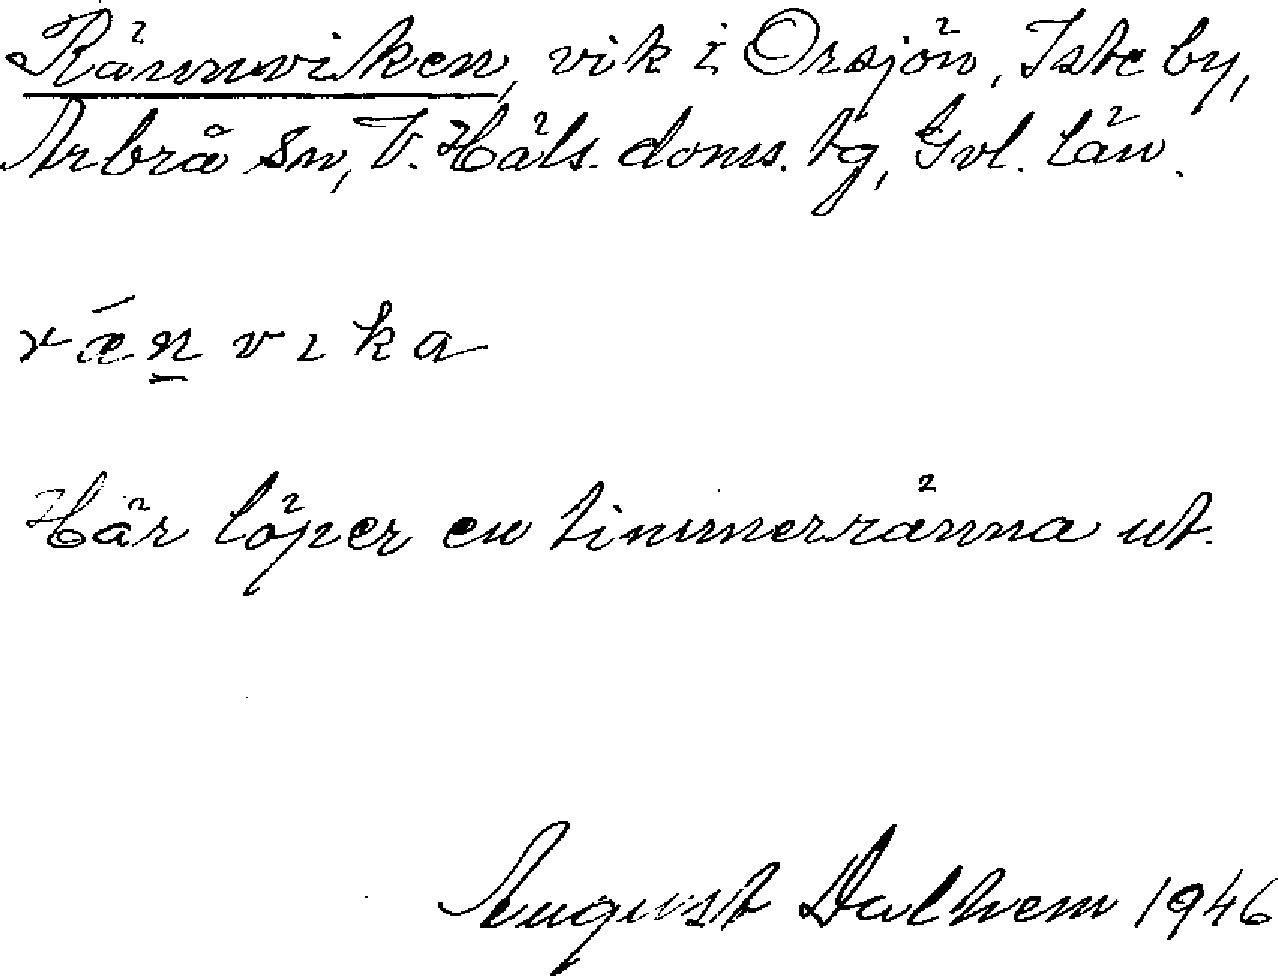 Rännviken, vik i Orsjön, Iste by,
Arbrå sn, V. Häls. doms. tg, Gvl. län.
rǽn̲vıka
Här löper en timmerränna ut.
August Dalhem 1946